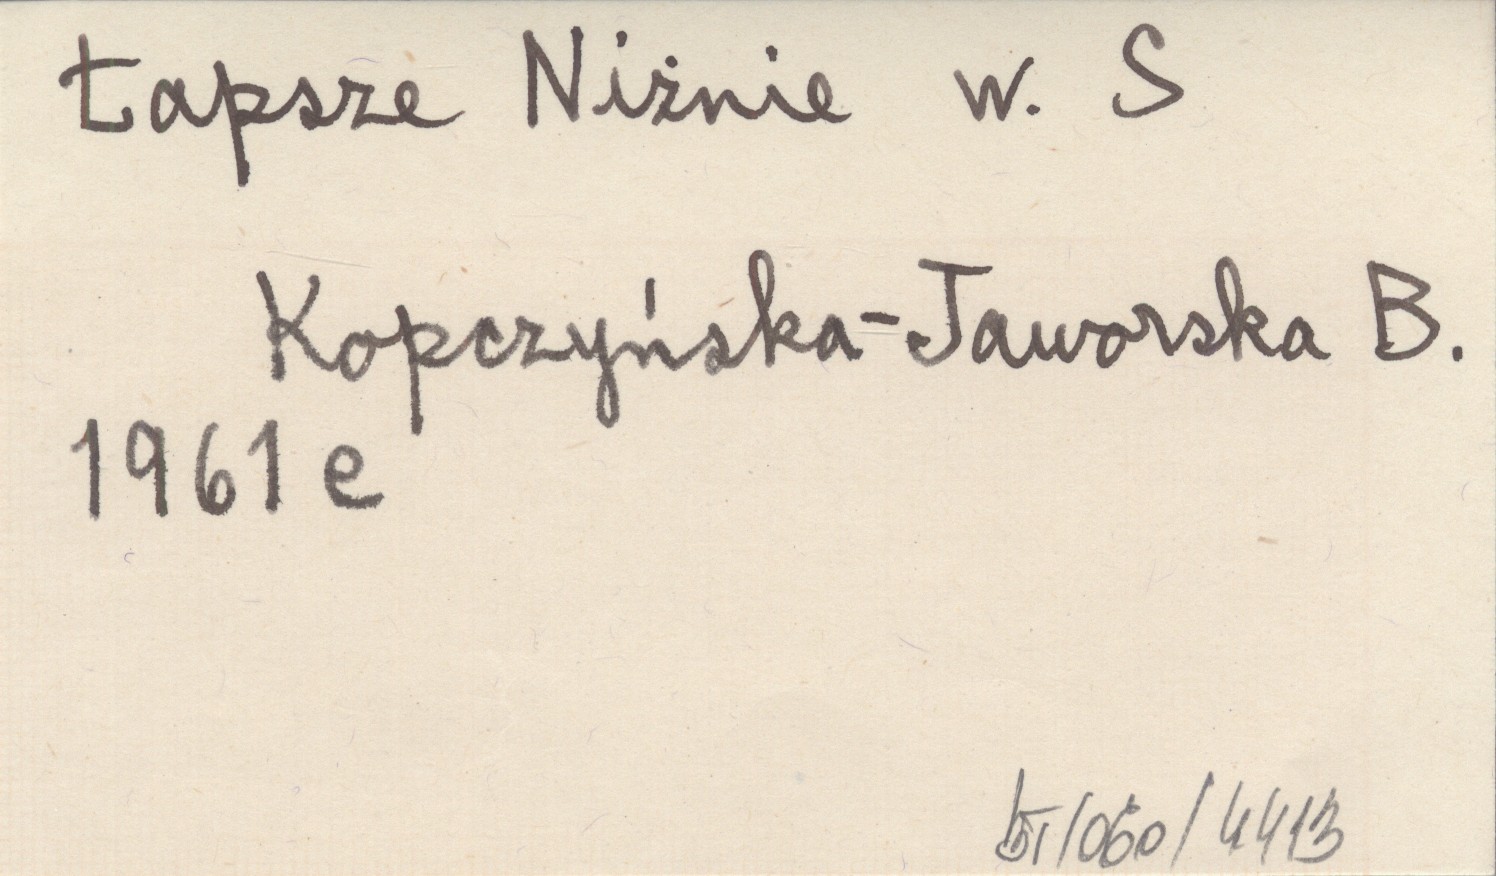 Łapsze Niżnie w. S
Kopczyńska-Jaworska B.
1961 e
/060/4413